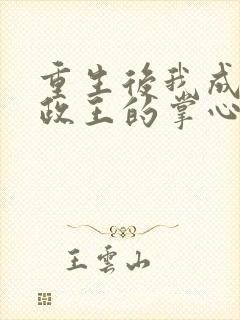 重生後我成
政王的掌心
王雲山